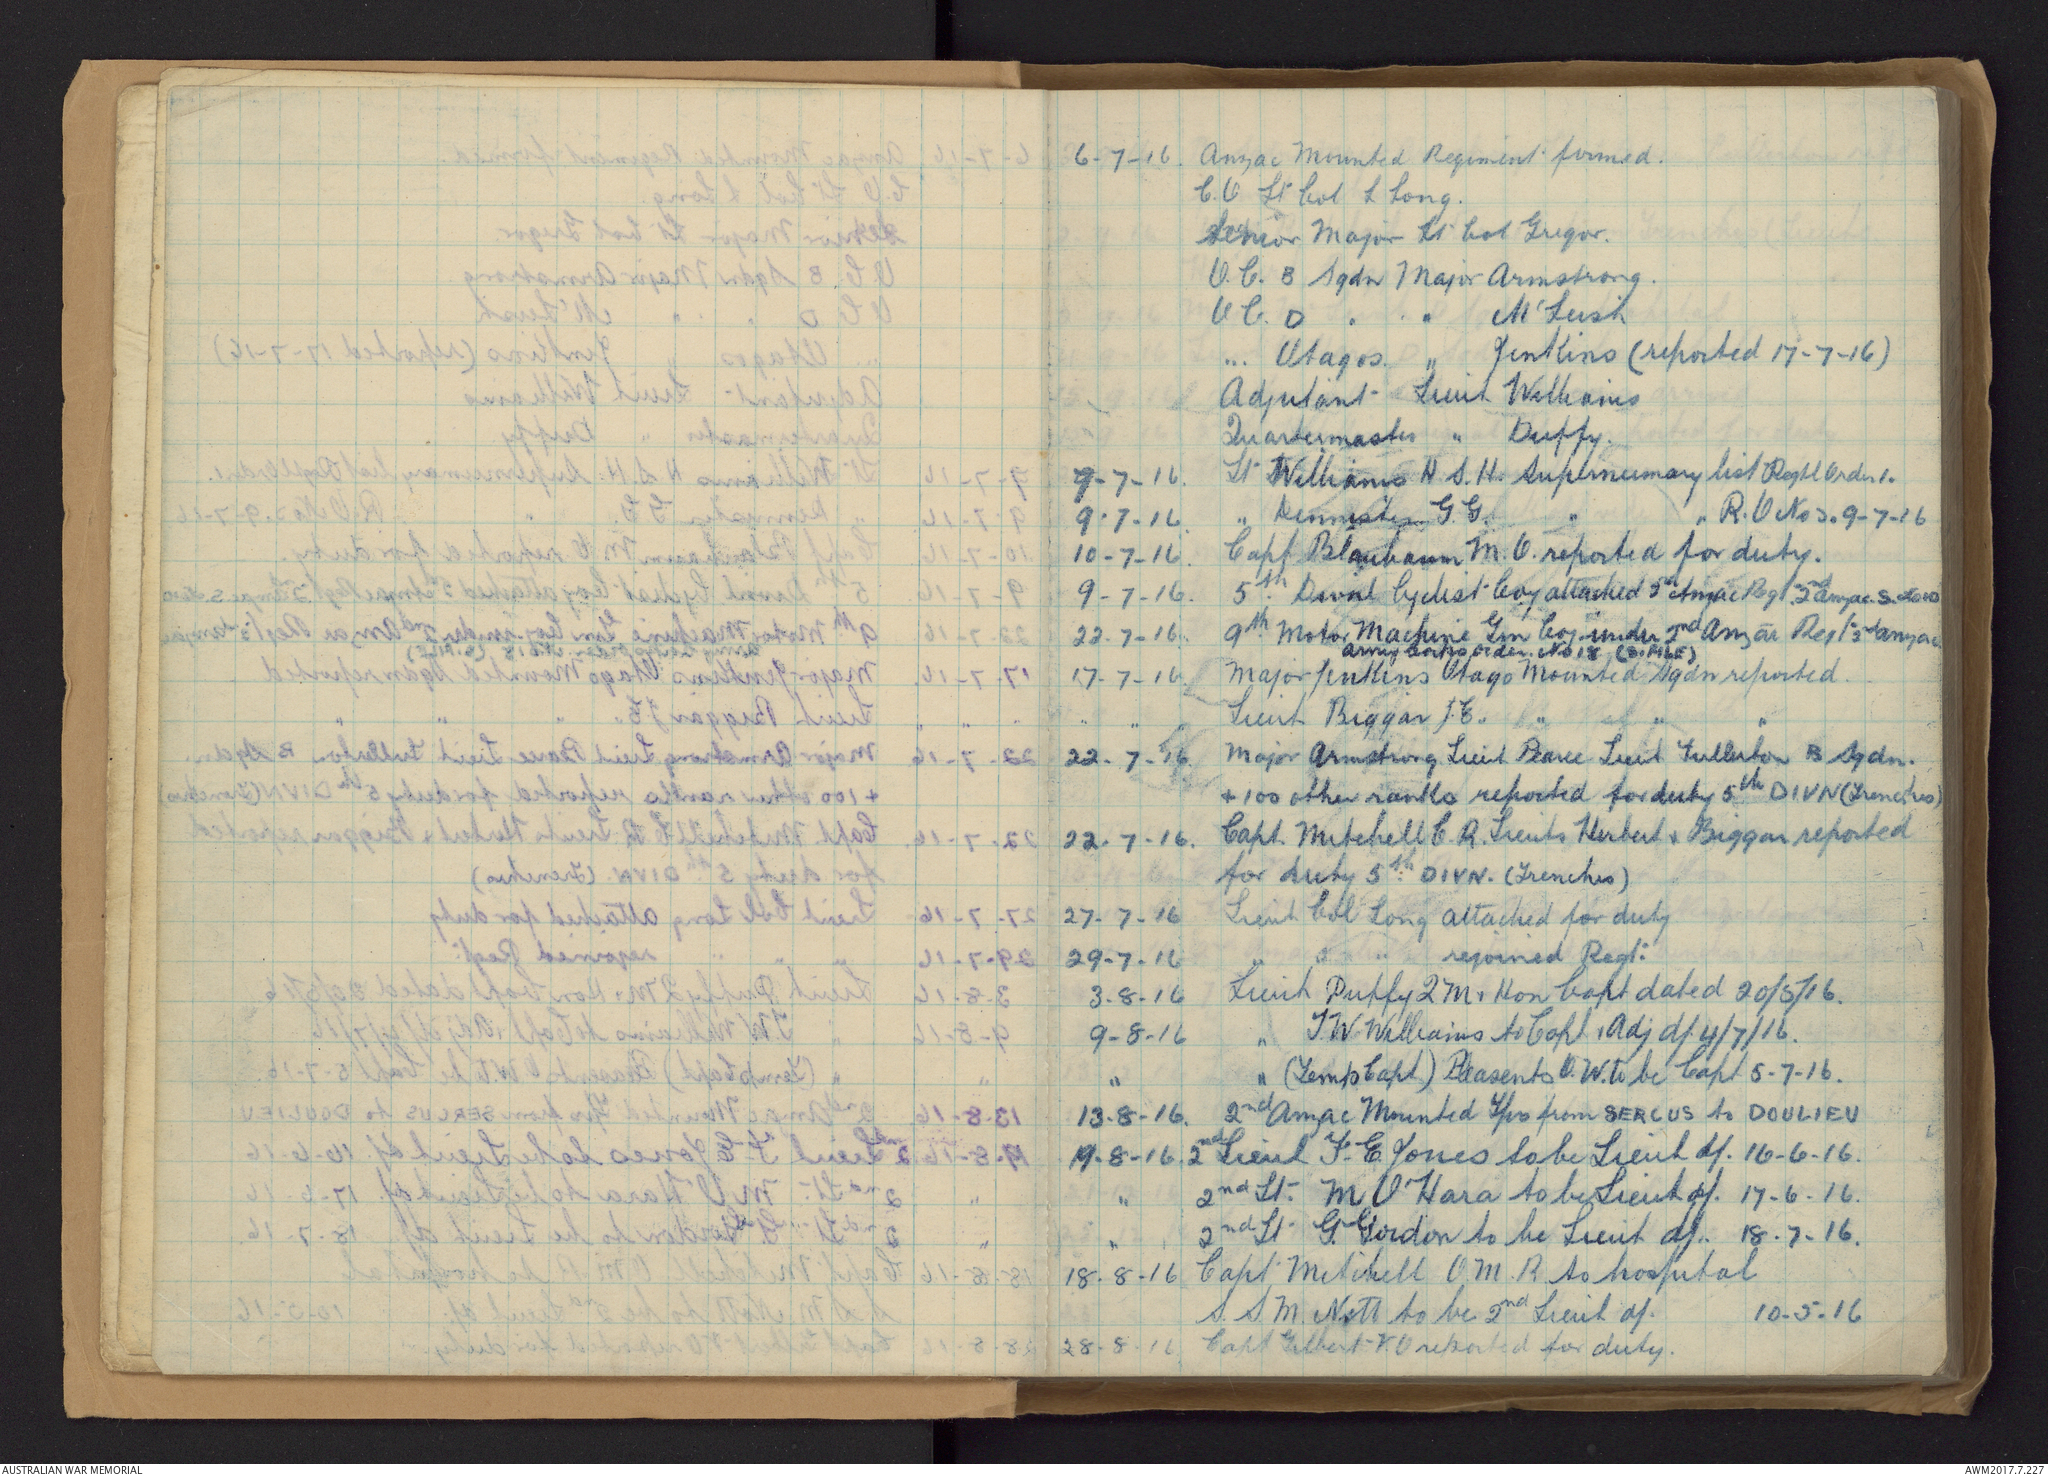 6-7-16. Anzac Mounted Regiment formed.
C.O Lt Col L Long.
Senior Major Lt Col Grigor.
O.C. B Sqdn Major Armstrong.
O C. D " " " McLeish
" " Otagos. " Jenkins (reported 17-7-16)
Adjutant Lieut Williams
Quartermaster " Duffy.
9-7-16. Lt Williams H S.H. Supernumary list Regtl Order 1.
9-7-16. " G.G. " " R.O No 3. 9-7-16
10-7-16. Capt Blaubaum M.O. reported for duty.
9-7-16. 5th Divnl Cyclist Coy attached Anzac Regt 2nd Anzac S.
22-7-16. 9th Motor Machine Gun Coy under 2nd Anzac Regt 2nd Anzac
Army Corps order No 18 (S.FILE)
17-7-16 Major Jenkins Otago Mounted Sqdn reported.
" " " Lieut Biggar J.E. " " "
22-7-16. Major Armstrong Lieut Pearce Lieut Fullerton B Sqdn.
+ 100 other ranks reported for duty 5th DIVN (Trenches)
22-7-16. Capt. Mitchell C.R. Lieuts Herbert & Biggar reported
for duty 5th DIVN. (Trenches)
27-7-16 Lieut Col Long attached for duty
29-7-16 " " " rejoined Regt.
3-8-16 Lieut Duffy Q M & Hon Capt dated 20/5/16.
9-8-16 " T.W. Williams to Capt & Adj d/ 4/7/16.
" " (Temp Capt.) Pleasents O.W. to be Capt 5-7-16.
13-8-16. 2nd Anzac Mounted Tps from SERCUS to DOULIEU
19-8-16. 2nd Lieut F. E Jones to be Lieut d/. 16-6-16.
" 2nd Lt. M O'Hara to be Lieut d/. 17-6-16.
" 2nd Lt G. Gordon to be Lieut d/. 18-7-16.
18-8-16 Capt Mitchell O.M.R. to hospital
S.S.M. Nott to be 2nd Lieut d/. 10-5-16
28-8-16. Capt Gilbert V.O reported for duty.
AUSTRALIAN WAR MEMORIAL
AWM2017.7.227